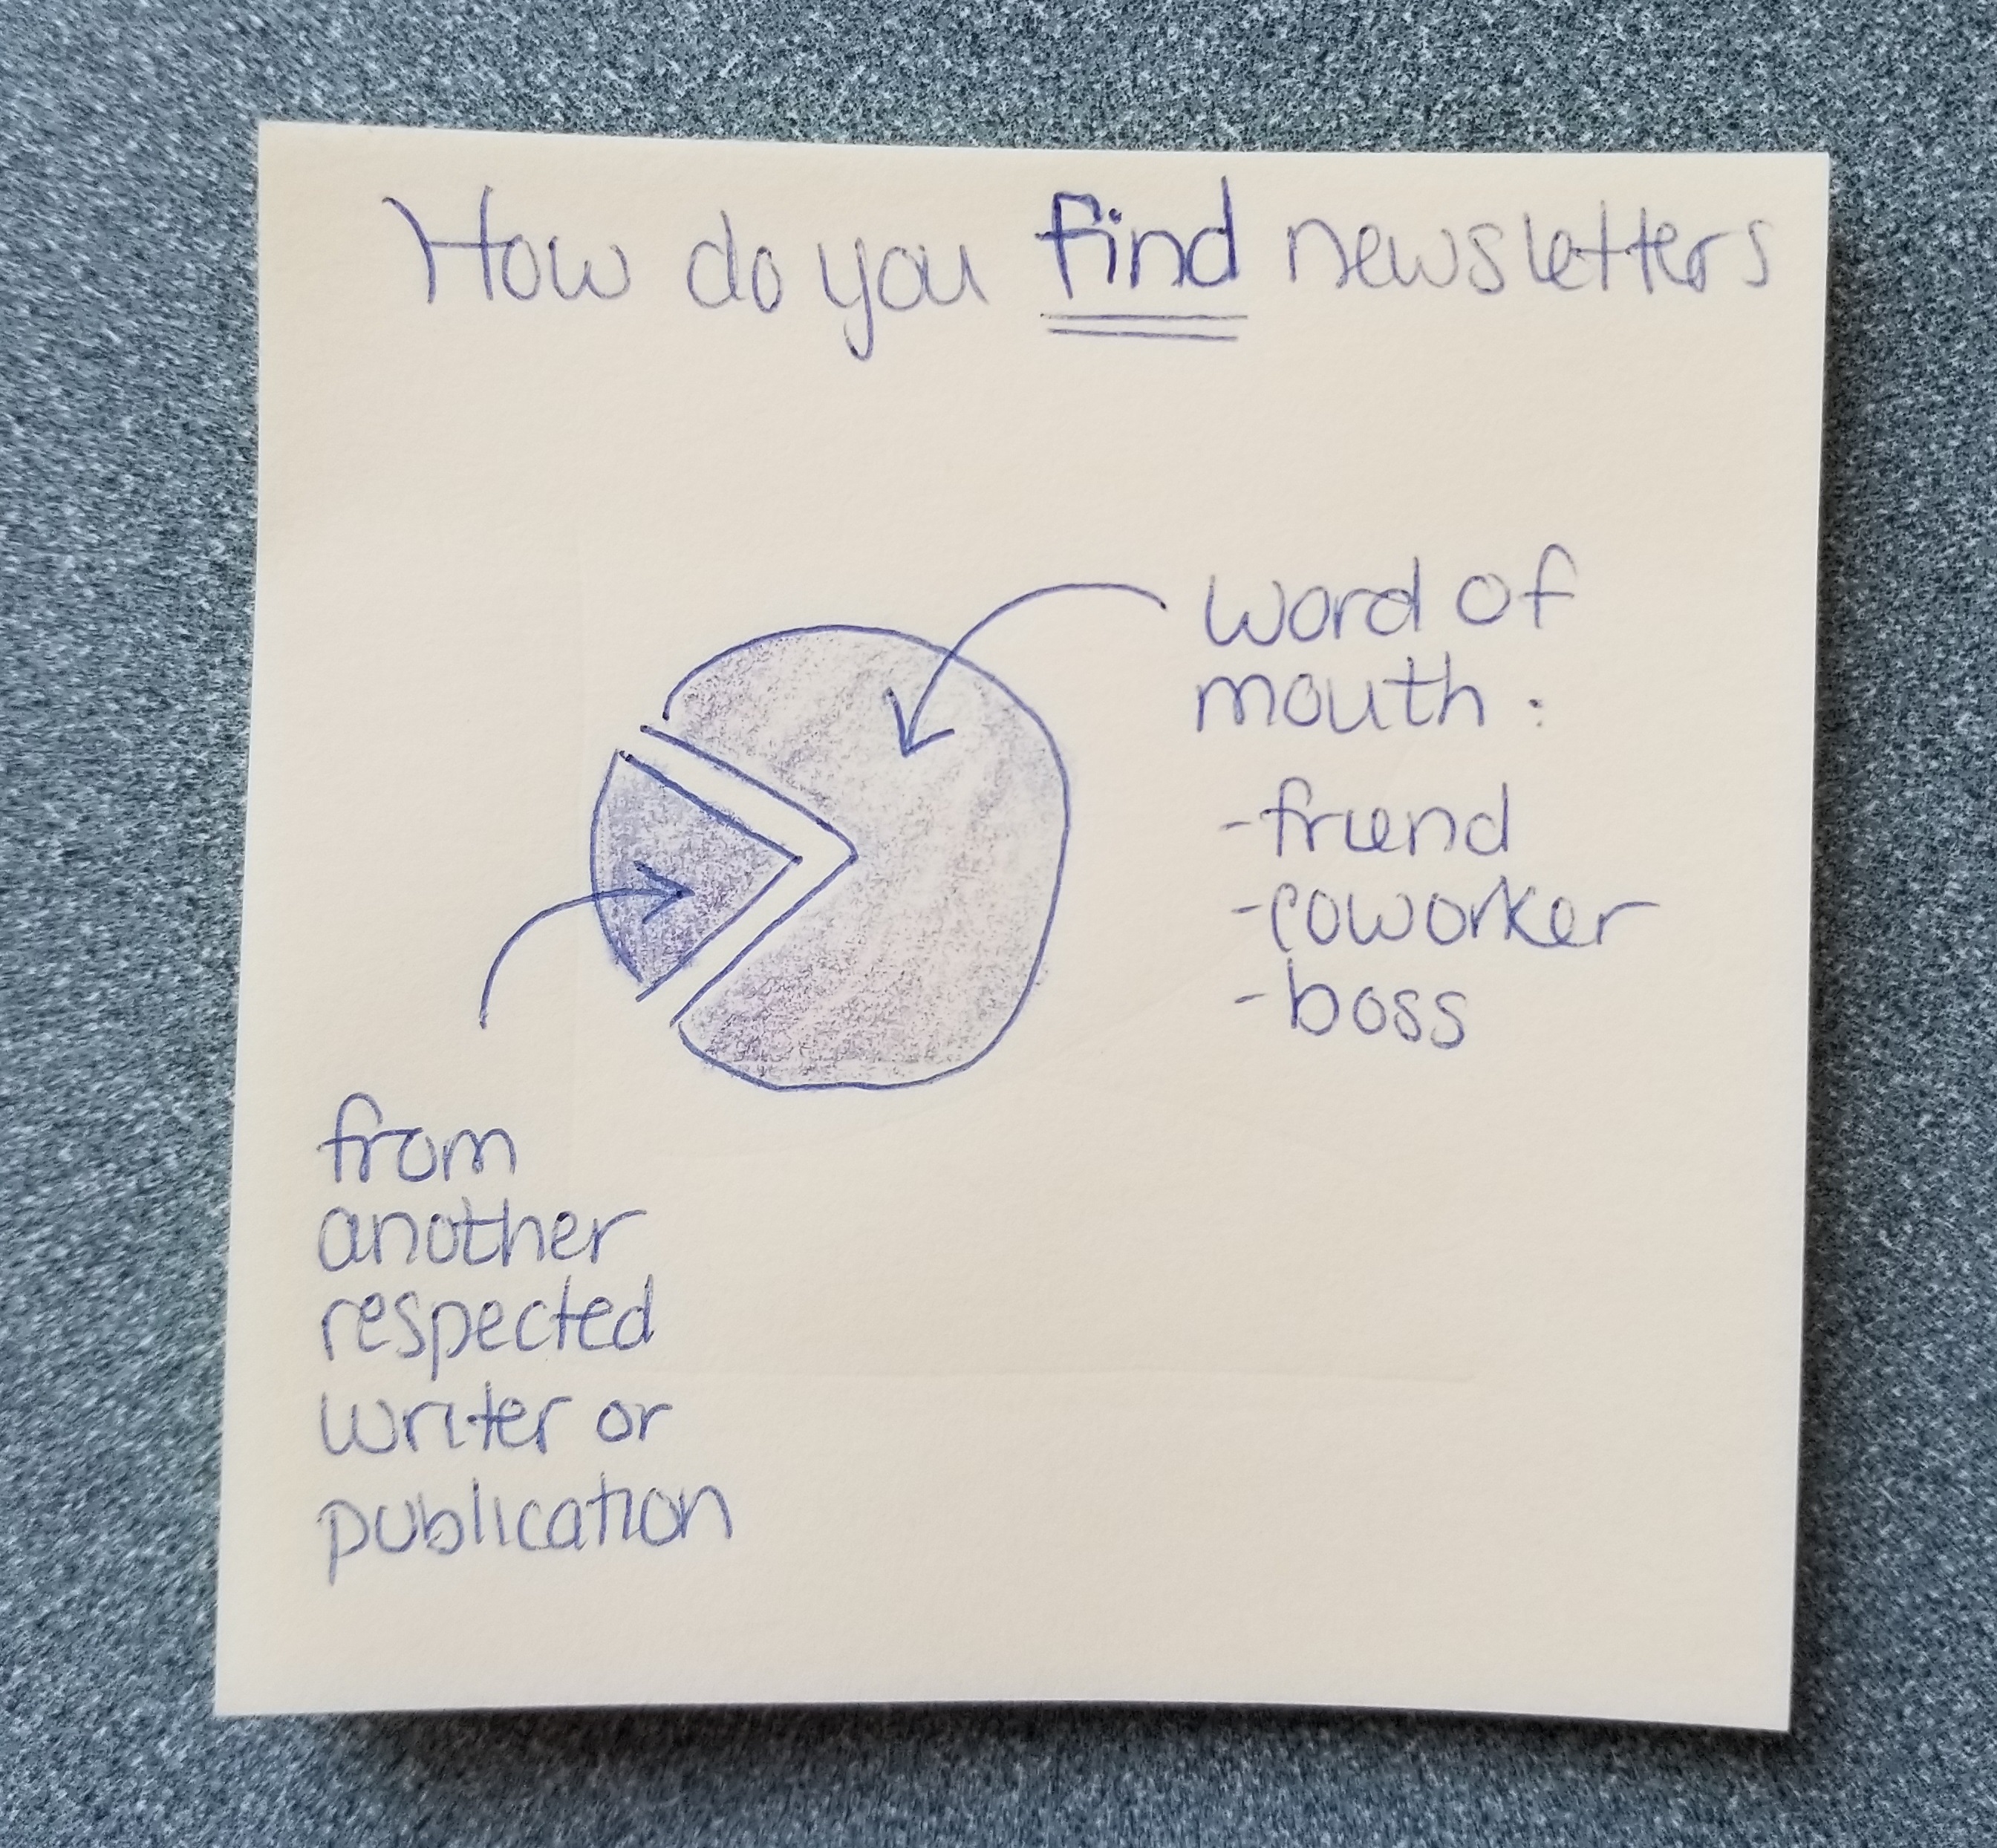 How do you find newsletters
word of
mouth:
-friend
-coworker
-boss
from
another
respected
writer or
publication